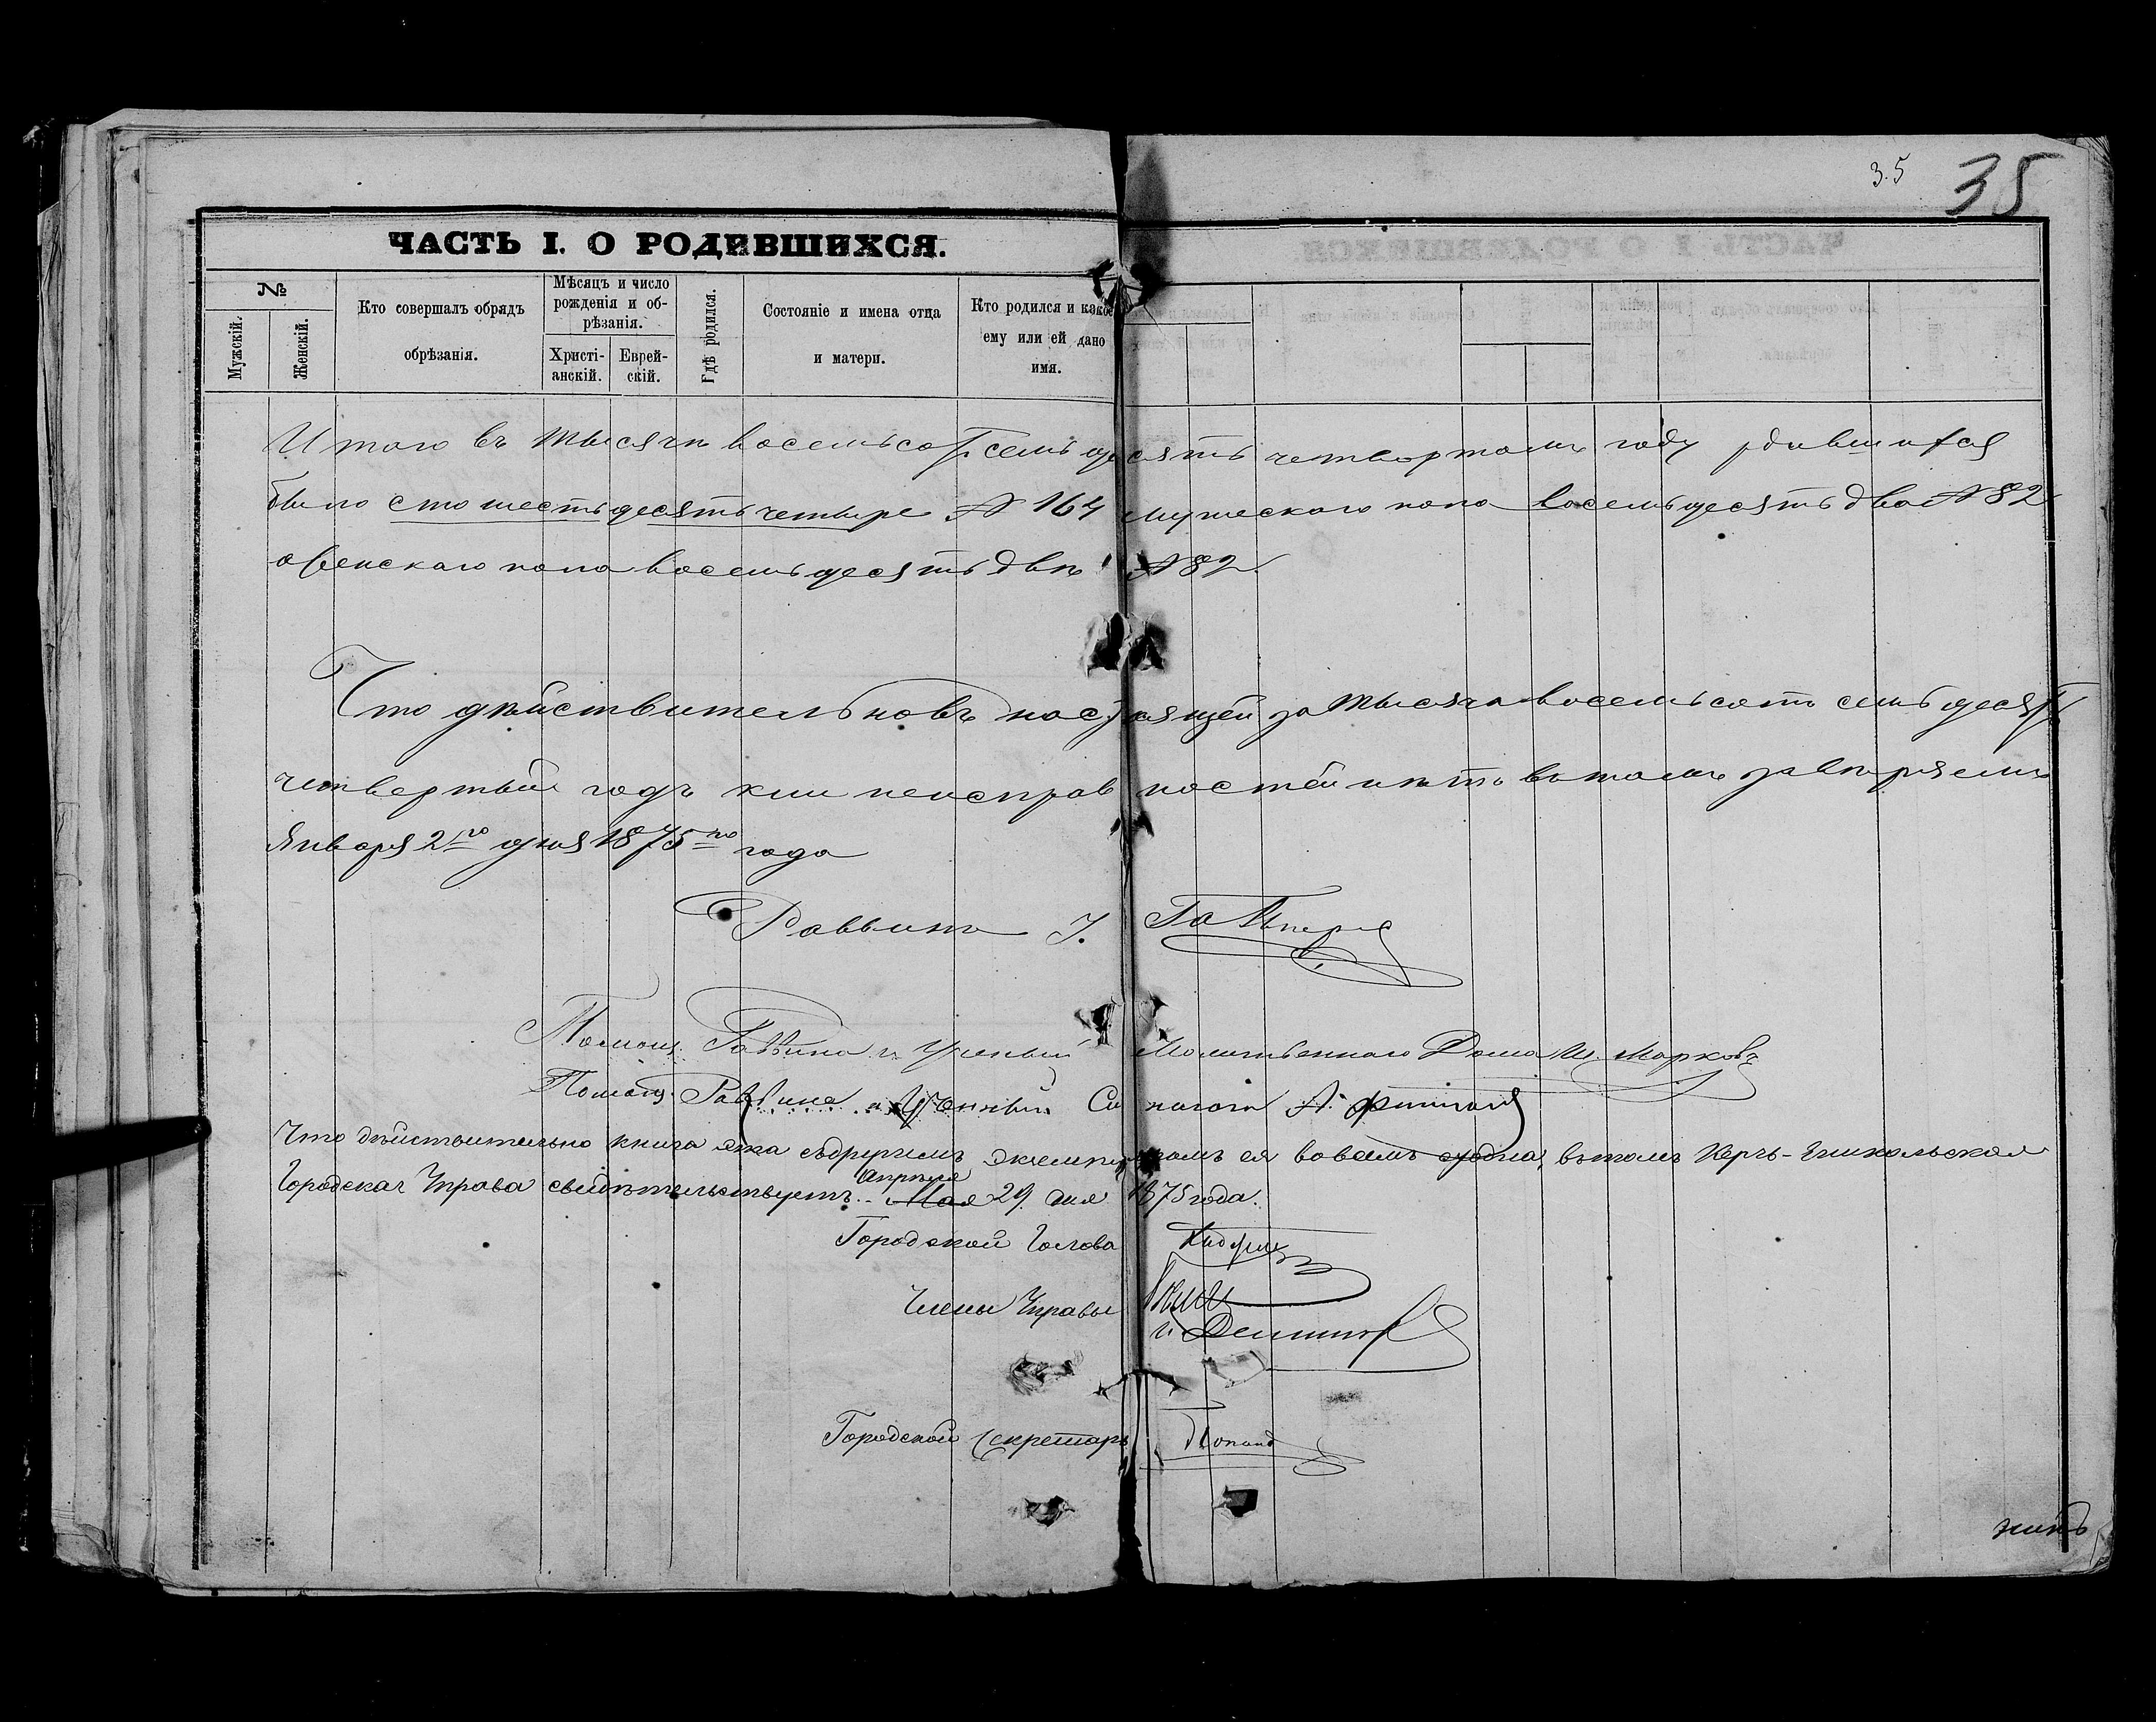 3.5 35
ЧАСТЬ I. О РОДИВШИХСЯ.
№
Мужскій.
Женскій.
Кто совершалъ обрядъ
обрѣзанія.
Мѣсяцъ и число
рожденія и об-
рѣзанія.
Христі-
анскій.
Еврей-
скій.
Гдѣ родился.
Состояніе и имена отца
и матери.
Кто родился и какое
ему или ей дано
имя.
Итого въ тысяча восемьсот семьдесять четвортомъ году рдившихся
было сто шестьдесять четыре № 164 мужескаго пола восемьдесять два № 82
женскаго пола восемьдесять двѣ № 82.
Что дѣйствительно въ настоящей за тысяча восемьсотъ семьдесят
четвертый годъ кни неисправностей нѣтъ въ томъ завѣряемъ
Января 2го дня 1875го года
Раввинъ I.
Помощ. Раввина и Ученый Молитвеннаго Дома Ш. Марковъ
Помощ. Раввина и Ученый Синагоги А.
Что дѣйствительно книга эта съ другимъ экземпляромъ ея во всемъ сходна, въ томъ Керчь-Еникольская
Городская Управа свидѣтельствуетъ. Апрѣля Мая 29 дня 1875 года.
Городской Голова
Члены Управы
и
Городской Секретарь